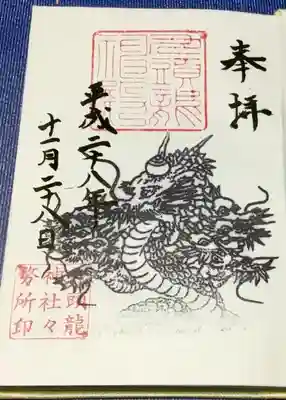 奉拝
平成二十八年
十一月二十八日
龍
神社々
務所印